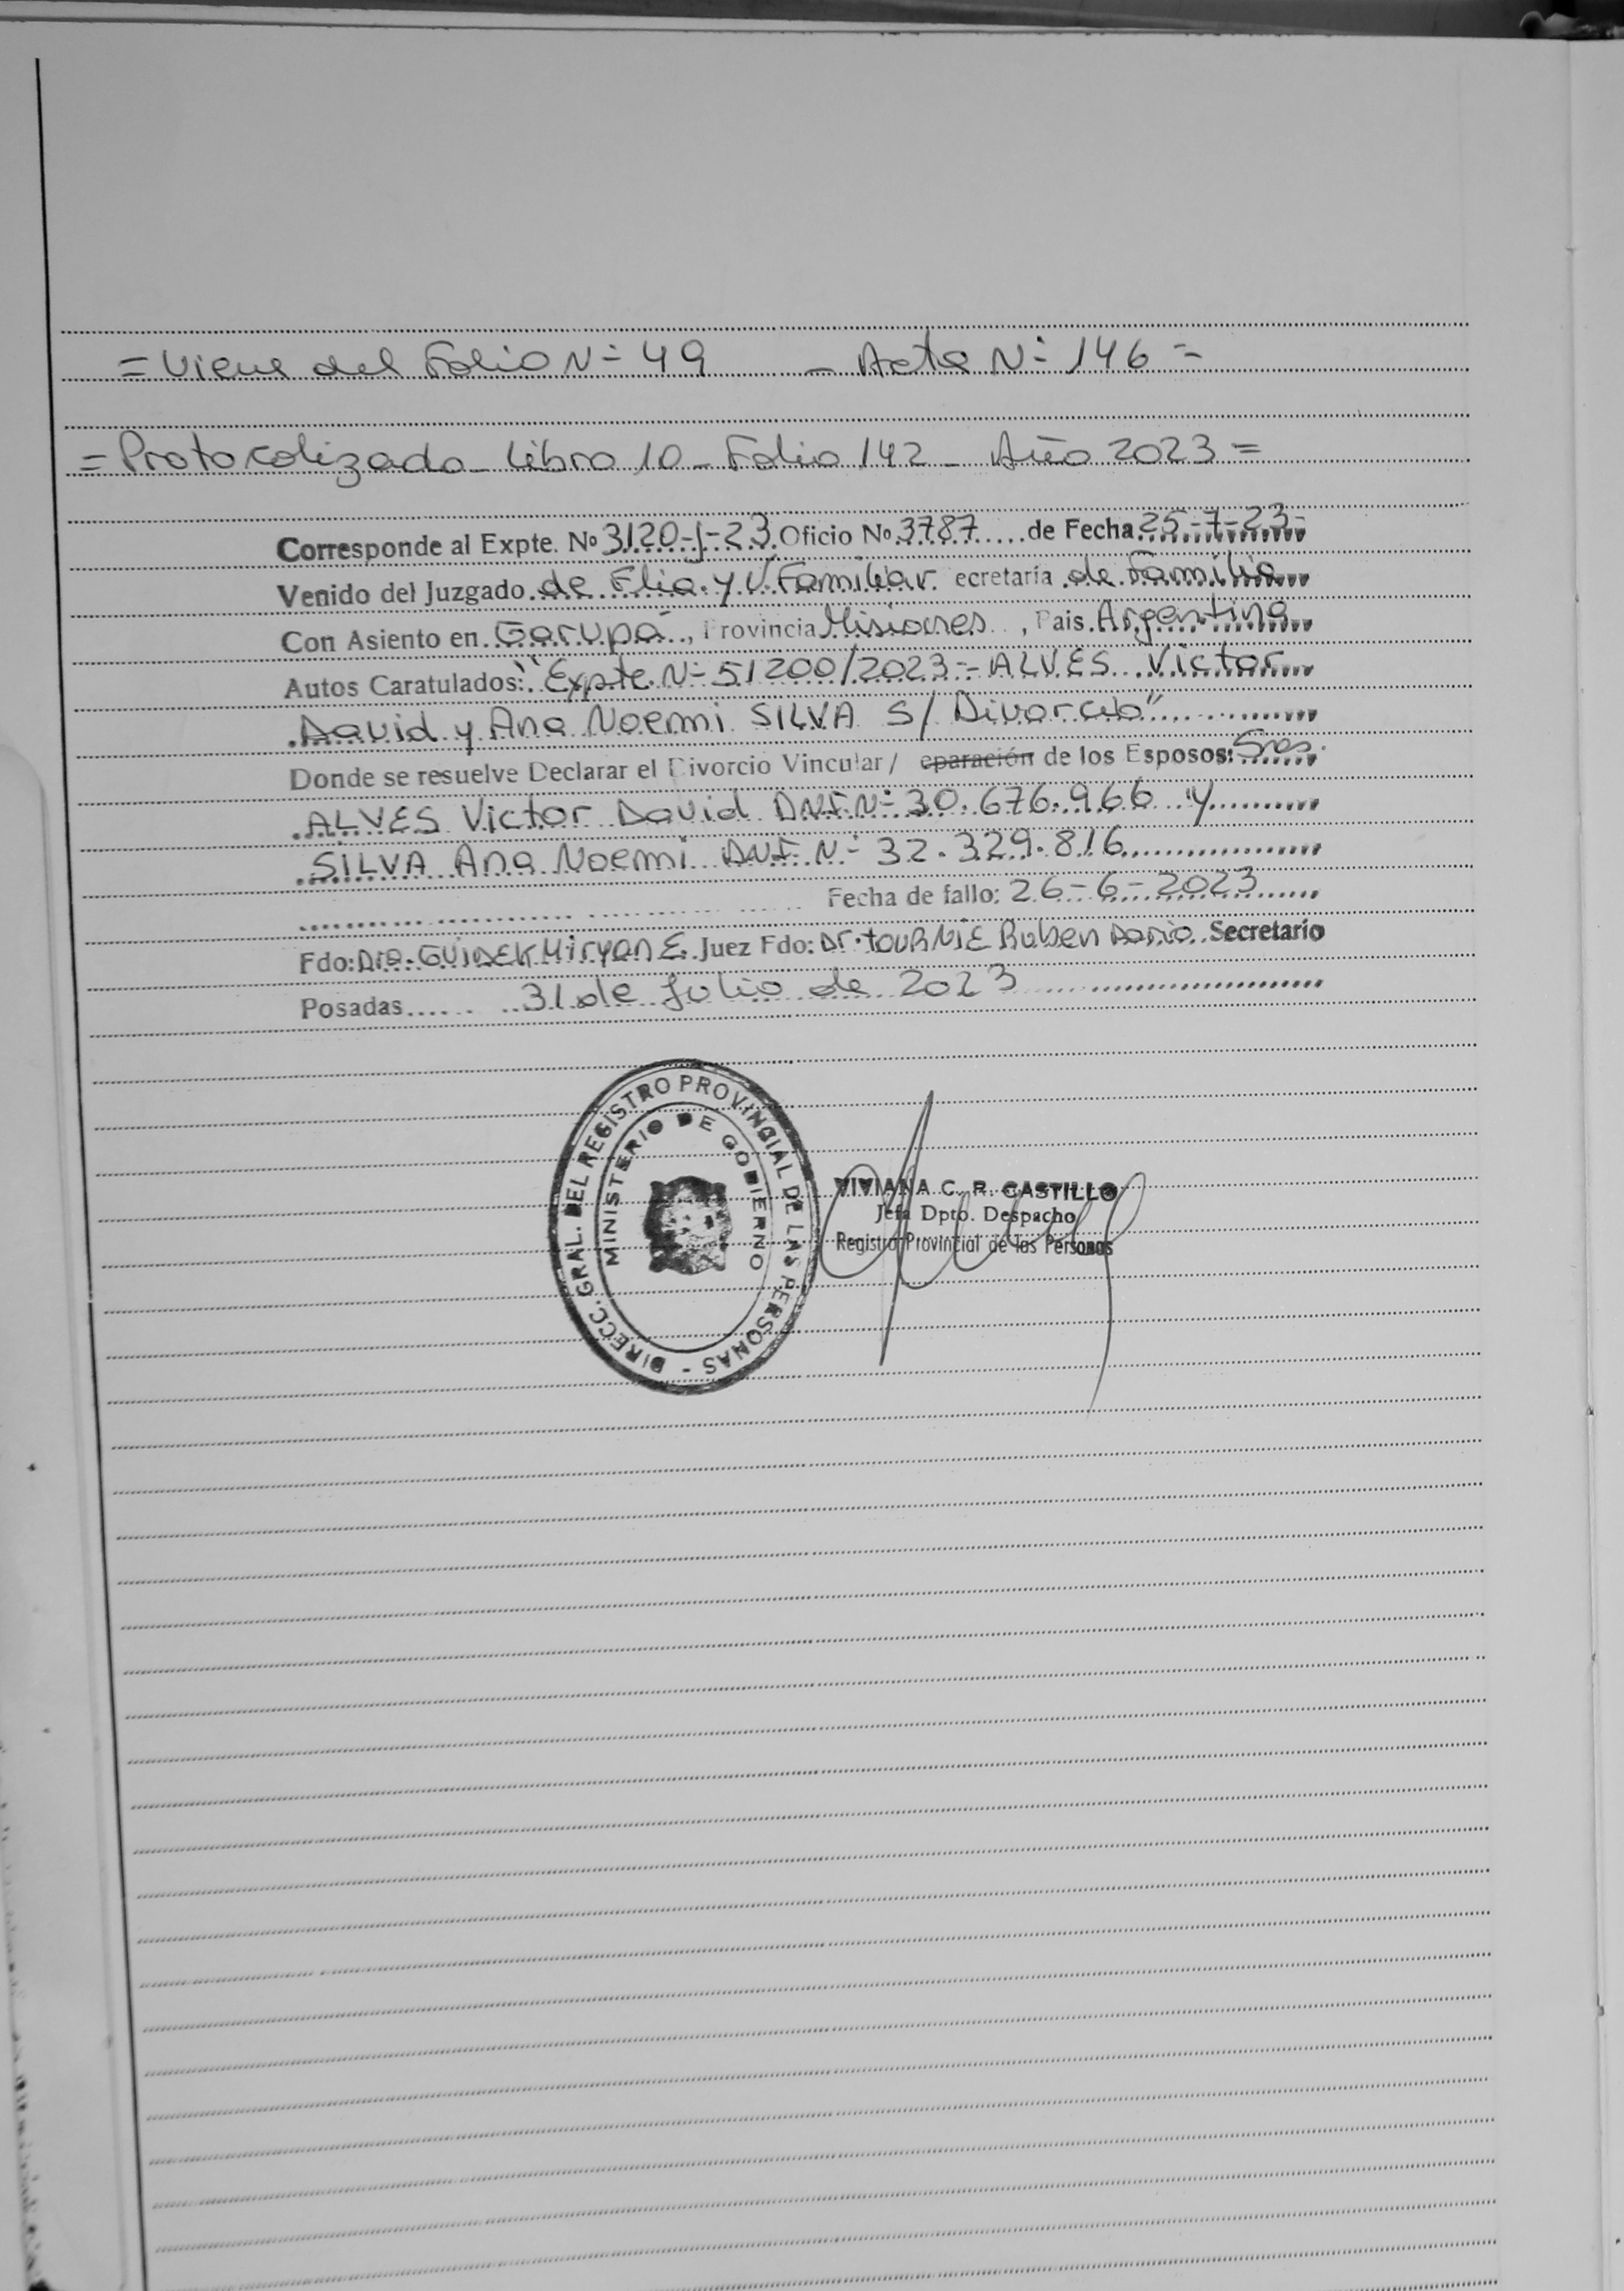 = Viene del Folio Nº 49 - Acta Nº 146 =
= Protocolizado - Libro 10 - Folio 142 - Año 2023 =
Corresponde al Expte. Nº 3120-J-23 Oficio Nº 3787 de Fecha 25-7-23-
Venido del Juzgado de Flia. y V. Familiar ecretaría de Familia
Con Asiento en Garupá, Provincia Misiones, Pais Argentina
Autos Caratulados: "Expte. Nº 51200/2023 - ALVES Victor
David y Ana Noemi SILVA S/ Divorcio"
Donde se resuelve Declarar el Divorcio Vincular / eparación de los Esposos: Sres.
ALVES Victor David DNI Nº 30.676.966 y
SILVA Ana Noemi DNI Nº 32.329.816
Fecha de fallo: 26-6-2023
Fdo: Dra. GUIDEK Miryan E. Juez Fdo: Dr. TOURNIE Ruben Dario Secretario
Posadas 31 de Julio de 2023
DIRECC. GRAL. DEL REGISTRO PROVINCIAL DE LAS PERSONAS -
MINISTERIO DE GOBIERNO
VIVIANA C. R. CASTILLO
Jefa Dpto. Despacho
Registro Provincial de las Personas